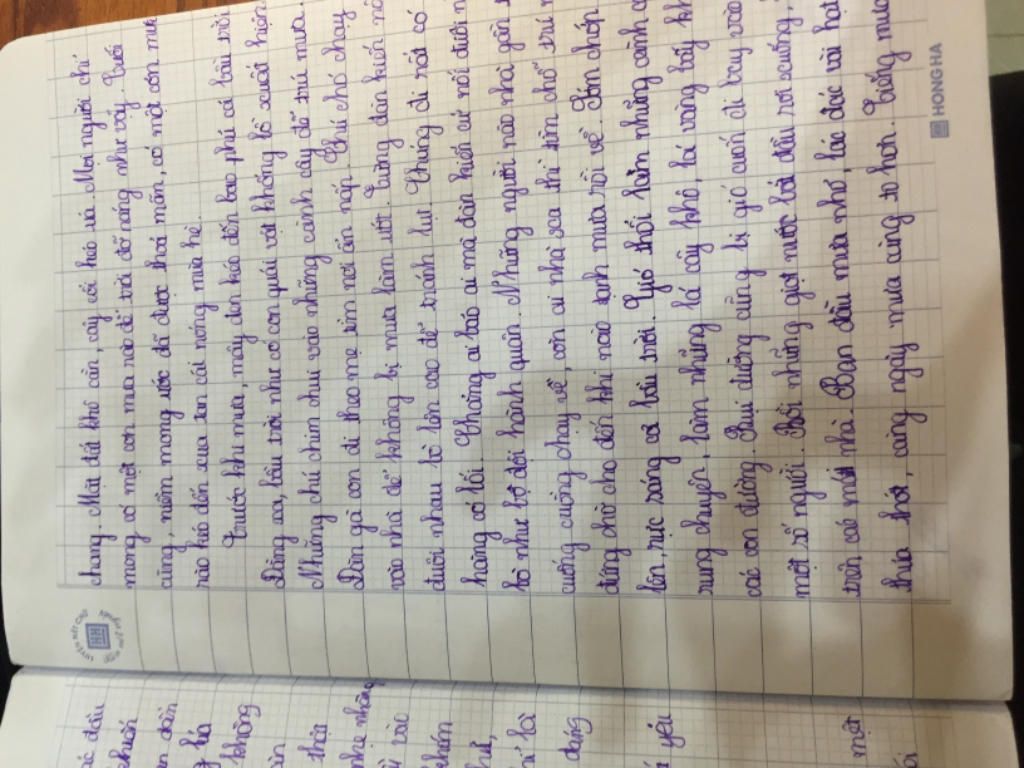 chang. Mặt đất khô cằn, cây cối héo úa. Mọi người chỉ
mong có một cơn mưa nào để trời đỡ nóng như vậy. Cuối
cùng, niềm mong ước đã được thoả mãn, có một cơn mưa
rào kéo đến xua tan cái nóng mùa hè.
Trước khi mưa, mây đen kéo đến bao phủ cả bầu trời
Đằng xa, bầu trời như có con quái vật khổng lồ xuất hiện
Những chú chim chui vào những cành cây để trú mưa.
Đàn gà con đi theo mẹ tìm nơi ẩn nấp. Chú chó chạy
vào nhà để không bị mưa làm ướt. Từng đàn kiến nối
đuôi nhau lò lên cao để tránh lụt. Chúng đi rất có
hàng có lối. Chẳng ai bảo ai mà đàn kiến cứ nối đuôi n
hò như bộ đội hành quân. Những người nào nhà gần
cuống cuồng chạy về, còn ai nhà xa thì tìm chỗ trú
đứng chờ cho đến khi nào tạnh mưa rồi về. Tóm chớp
lên, rực sáng cả bầu trời. Gió thổi làm những cành c
rung chuyển, làm những lá cây khô, lá vàng bay kh
các con đường. Bụi đường cũng bị gió cuốn đi bay vào
một số người. Rồi những giọt nước bắt đầu rơi xuống,
trên các mái nhà. Ban đầu mưa nhỏ, lác đác vài hạt
thưa thớt, càng ngày mưa càng to hơn. Tiếng mưa
HONG HA
LUYỆN NÉT CHỮ
HH
ác dấu
khuôn
n dần
lá
không
thìa
nhẹ nhàng
vào
khóm
là
dáng
yếu
một